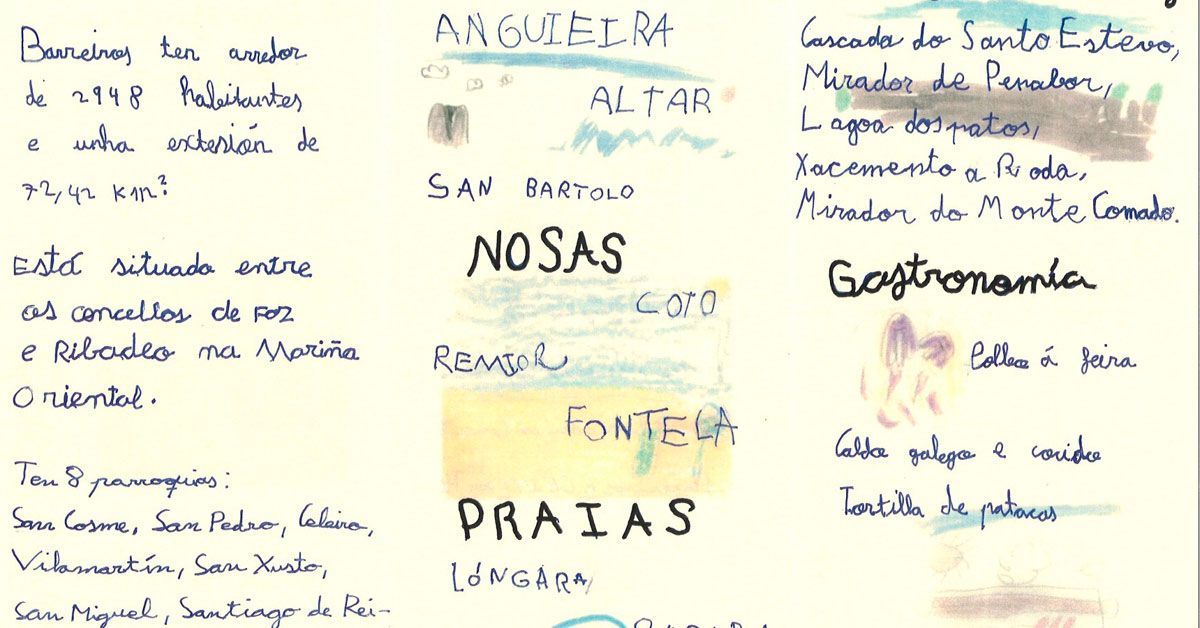 Barreiros ten arredor
de 2948 habitantes
e unha extesión de
72,42 Km²
Está situada entre
os concellos de FOZ
e Ribadeo na Mariña
Oriental.
Ten 8 parroquias:
San Cosme, San Pedro, Celeiro,
Vilamartín, San Xusto,
San Miguel, Santiago de Rei-
ANGUIEIRA
ALTAR
SAN BARTOLO
NOSAS
COTO
REMIOR
FONTELA
PRAIAS
LÓNGARA
Cascada do Santo Estevo,
Mirador de Penabor,
Lagoa dos patos,
Xacemento a Roda,
Mirador do Monte Comado.
Gastronomía
á feira
Caldo galego e cocido
Tortilla de patacas